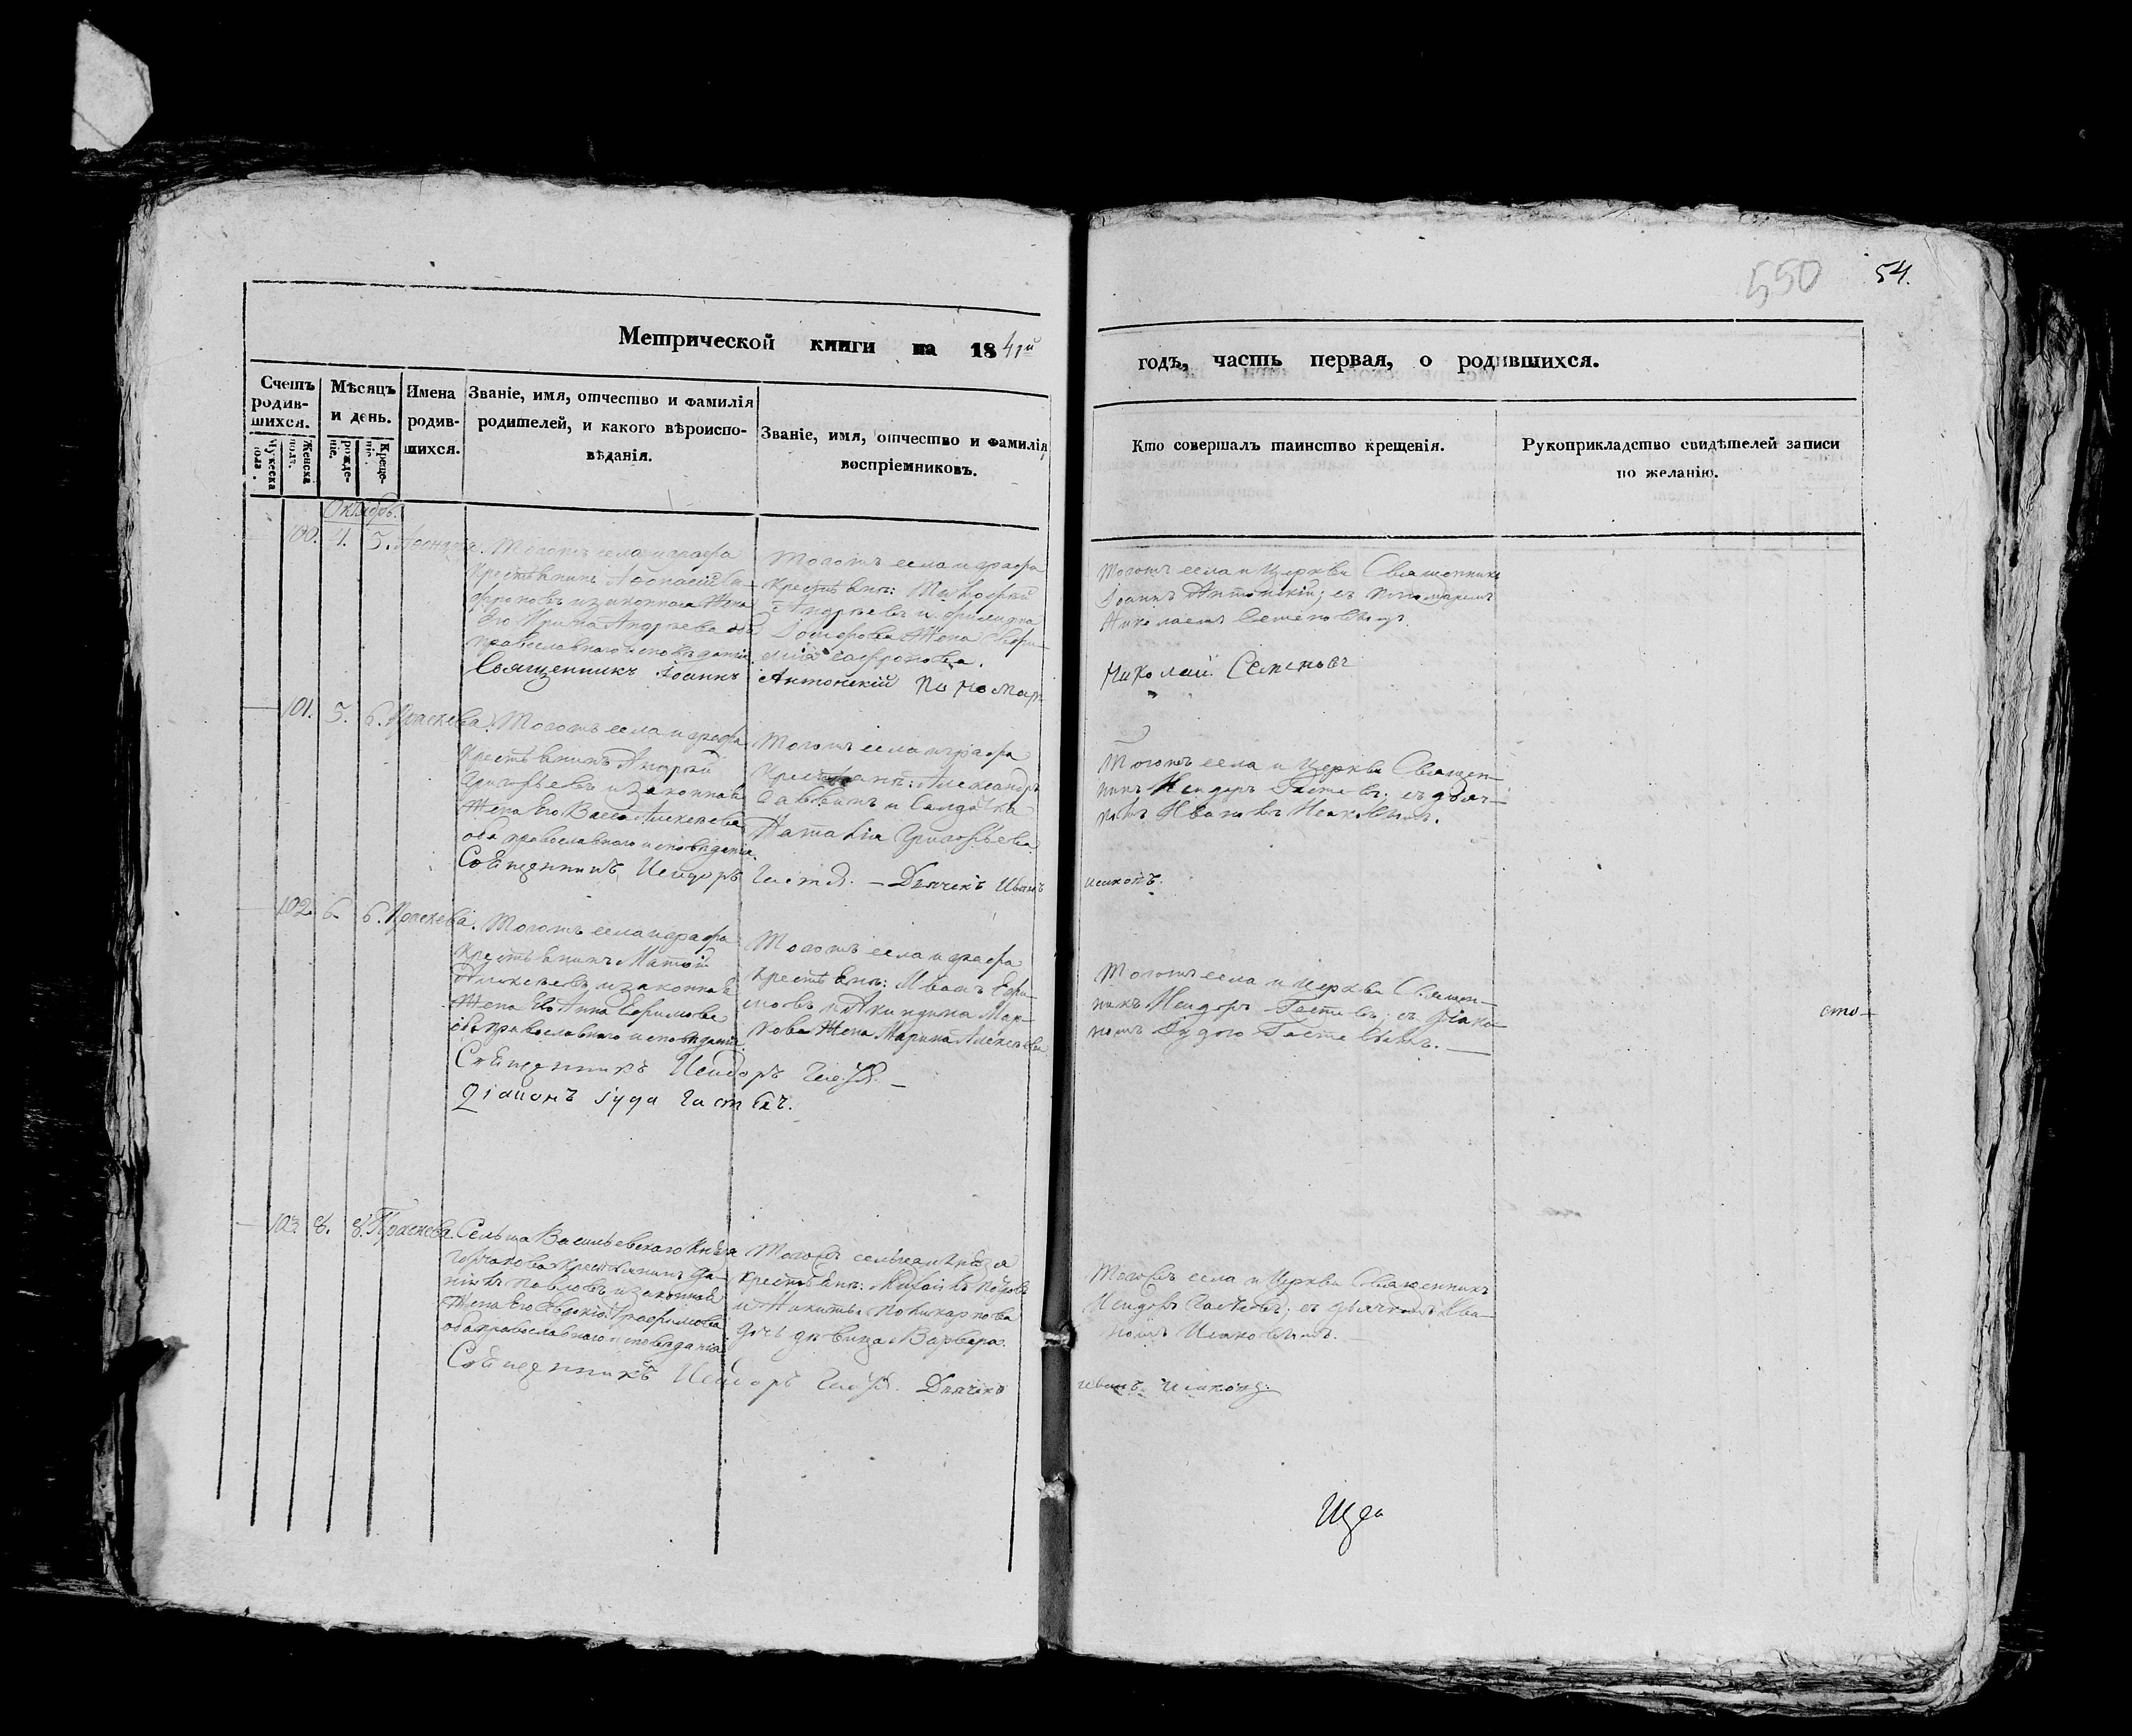 550
54.
Метрической книги на 1841й
годъ, часть первая, о родившихся.
Счетъ родив-
шихся.
Мужеска пола.
Женска пола.
Мѣсяцъ
и день.
Рожде-
нія.
Креще-
нія.
Имена
родив-
шихся.
Званіе, имя, отчество и фамилія
родителей, и какого вѣроиспо-
вѣданія.
Званіе, имя, отчество и фамилія
воспріемниковъ.
Кто совершалъ таинство крещенія.
Рукоприкладство свидѣтелей записи
по желанію.
Октябрь.
100. 4. 5.
Тогожъ села и графа
крестьянинъ
и законная жена
Его Андреева оба
православнаго исповѣданія
Тогожъ села и графа
крестьян:
Андреевъ и
жена
Сафронова.
Тогожъ села и Церкви Священникъ
Іоаннъ Антонскій; съ пономаремъ
Николаемъ Семеновымъ.
Священникъ Іоаннъ Антонскій Пономарь
Николай Семеновъ
101. 5. 6. Праскева.
Тогожъ села и графа
крестьянинъ Андрей
Григорьевъ и законная
жена Его Васса Алексеева
оба православнаго исповѣданія.
Тогожъ села и графа
крестьянъ: Александръ
Саввинъ и Солдатка
Наталія Григорьева.
Тогожъ села и Церкви Священ-
никъ Исидоръ Гастевъ; съ дьяч-
комъ Иваномъ Исаковымъ.
Священникъ Исидоръ Гастевъ. — Дьячекъ Иванъ
Исаковъ.
102. 6. 6. Праскева.
Тогожъ села и графа
крестьянинъ Матфій
Алексеевъ и законная
жена Его Анна Ефимова
оба православнаго исповѣданія.
Тогожъ села и графа
крестьян: Иванъ Ефи-
мовъ и Акиндина Мар-
кова жена Марина Алексеева
Тогожъ села и Церкви Священ-
никъ Исидоръ Гастевъ; съ діако-
номъ Іудою Гастевымъ. —
сто—
Священникъ Исидоръ Гастевъ. —
Діаконъ Іуда Гастевъ.
103. 8. 8. Праскева.
Сельца Васильевскаго Князя
Горчакова крестьянинъ Да-
ніилъ Павловъ и законная
жена Его Евдокія Трофимова
оба православнаго исповѣданія
Тогожъ сельца и Князя
крестьян: Михаилъ Петровъ
и Никиты Поликарпова
дочь девица Варвара.
Тогожъ села и Церкви Священникъ
Исидоръ Гастевъ; съ дьячкомъ Ива-
номъ Исаковымъ. —
Священникъ Исидоръ Гастевъ. Дьячекъ
Иванъ Исаковъ.